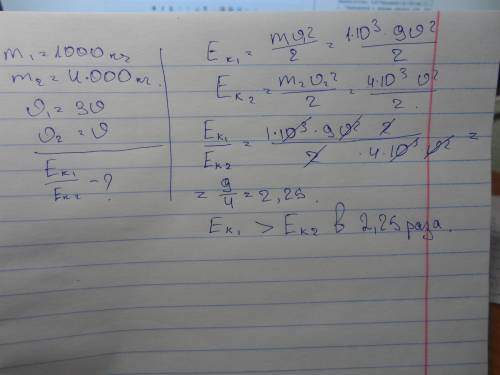 m₁ = 1000 кг
m₂ = 4.000 кг.
ϑ₁ = 3ϑ
ϑ₂ = ϑ
Eк₁/Eк₂ - ?
Eк₁ = mϑ²/2 = 1·10³·9ϑ²/2
Eк₂ = m₂ϑ₂²/2 = 4·10³ϑ²/2.
Eк₁/Eк₂ = 1·10³·9ϑ² 2/2 · 4·10³·ϑ² =
= 9/4 = 2,25.
Eк₁ > Eк2 в 2,25 раза.